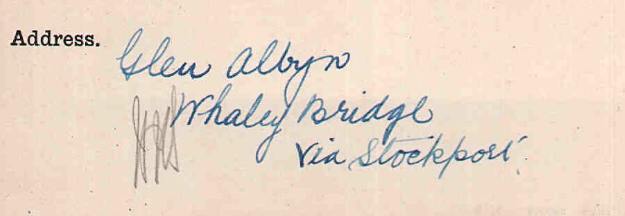 Address.
Glen Albyn
Whaley Bridge
Via Stockport.